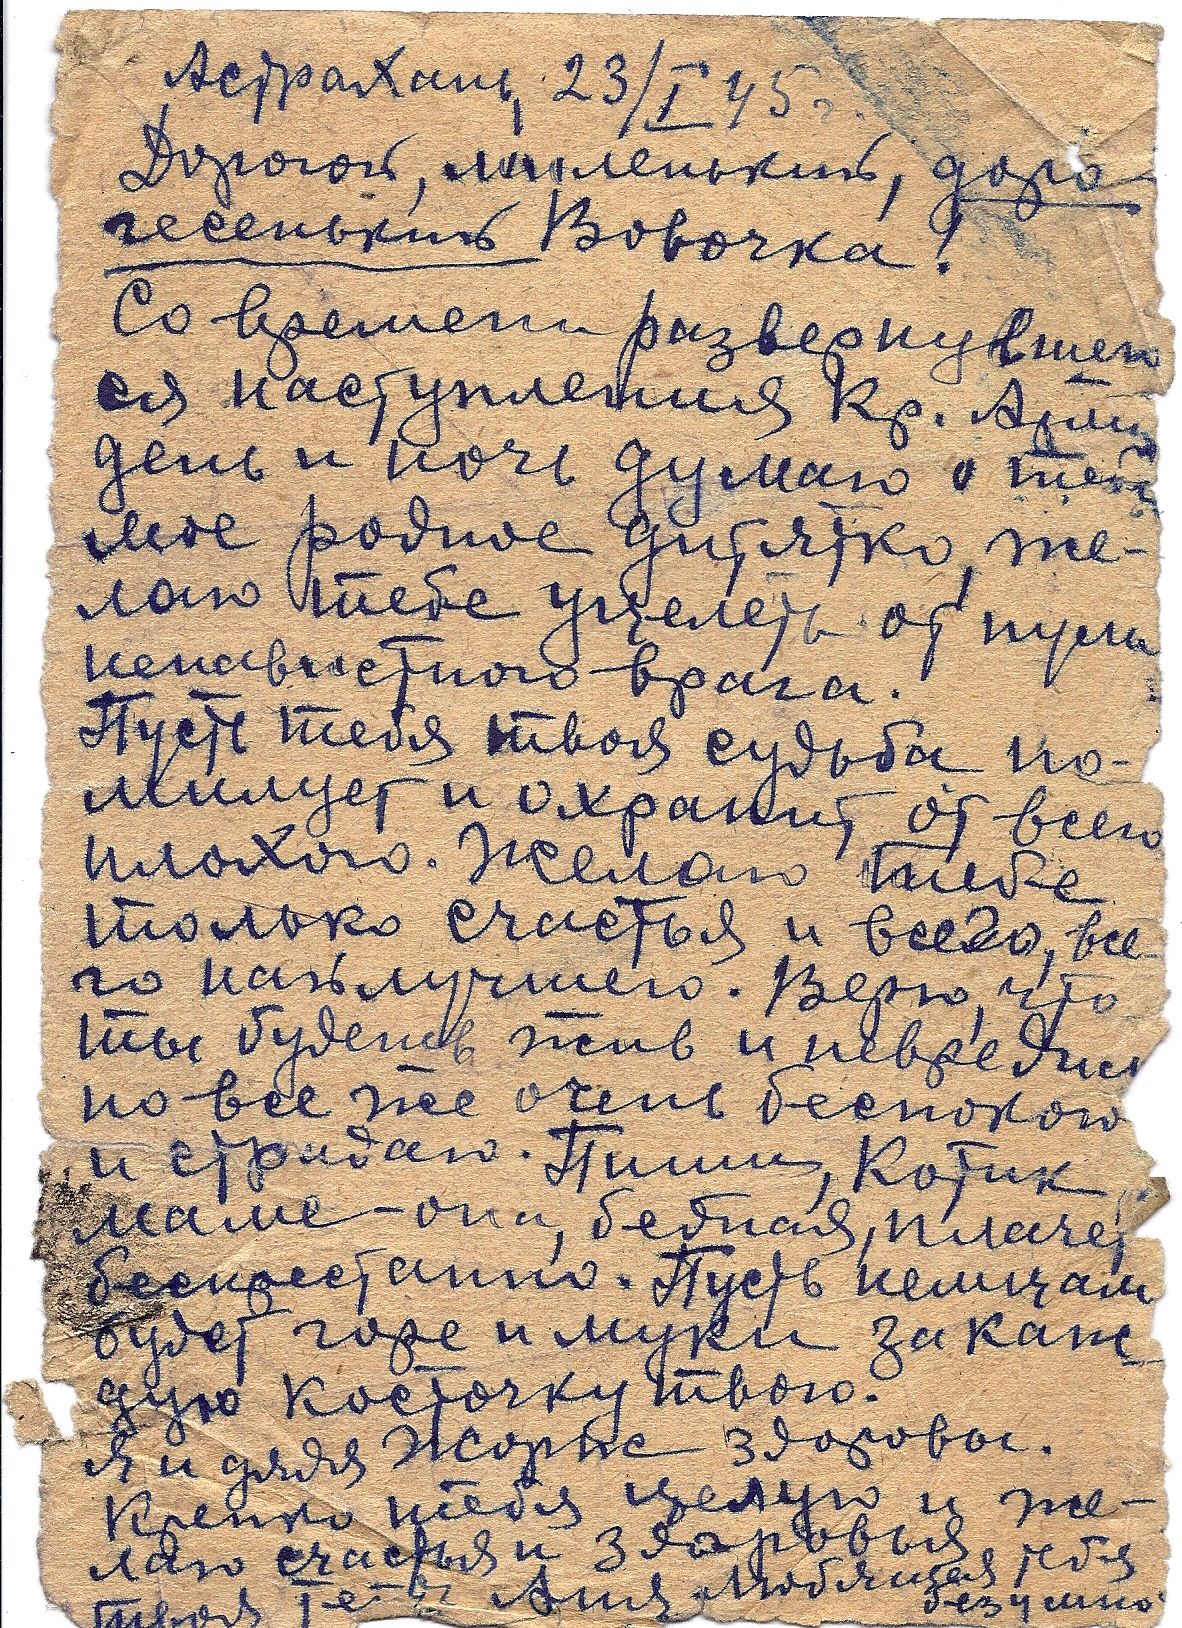 Астрахань, 23/I 45 г.
Дорогой, миленький, доро-
гесенький Вовочка!
Со времени развернувшего
ся наступления Кр. Армии
день и ночь думаю о тебе
мое родное дитятко, же-
лаю тебе уцелеть от пули
ненавистного врага.
Пусть тебя твоя судьба по-
милует и охранит от всего
плохого. Желаю тебе
только счастья и всего, все-
го наилучшего. Верю, что
ты будешь жив и невредим
но все же очень беспокою
и страдаю. Пиши, Котик
маме – она, бедная, плачет
беспрестанно. Пусть немцам
будет горе и муки за каж-
дую косточку твою.
Я и дядя Жорж здоровы.
Крепко тебя целую и же-
лаю счастья и здоровья
твоя тетя Аня любящая тебя
безумно